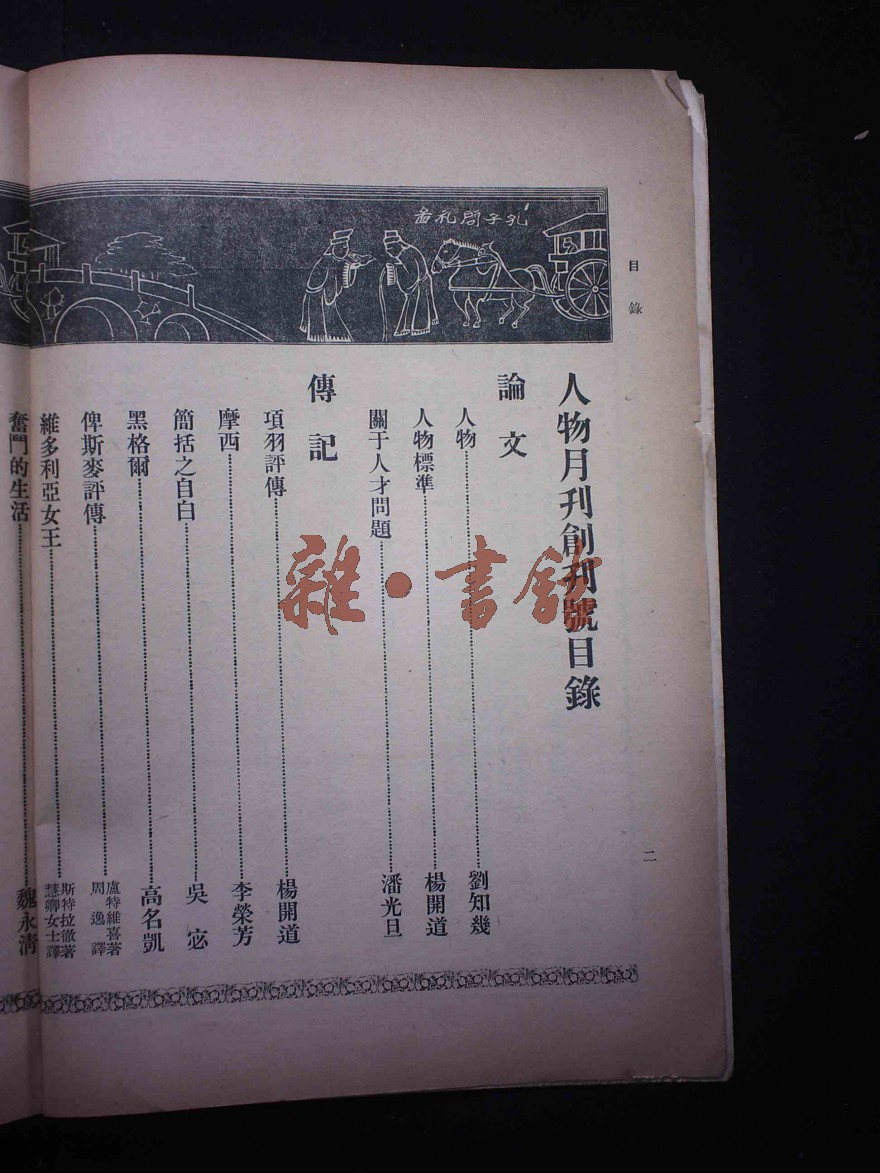 目錄
孔子問礼畵
人物月刊創刊號目錄
論文
人物……劉知幾
人物標準……楊開道
關于人才問題……潘光旦
傳記
項羽評傳……楊開道
摩西……李榮芳
簡括之自白……吳宓
黑格爾……高名凱
俾斯麥評傳……盧特維喜著 周逸譯
維多利亞女王……斯特拉徹著 慧卿女士譯
奮鬥的生活……魏永清
二
雜·書館